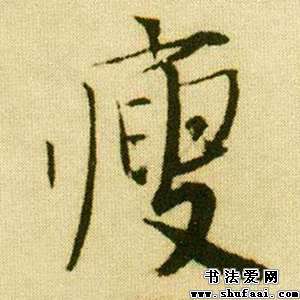 瘦
书法爱网
www.shufaai.com